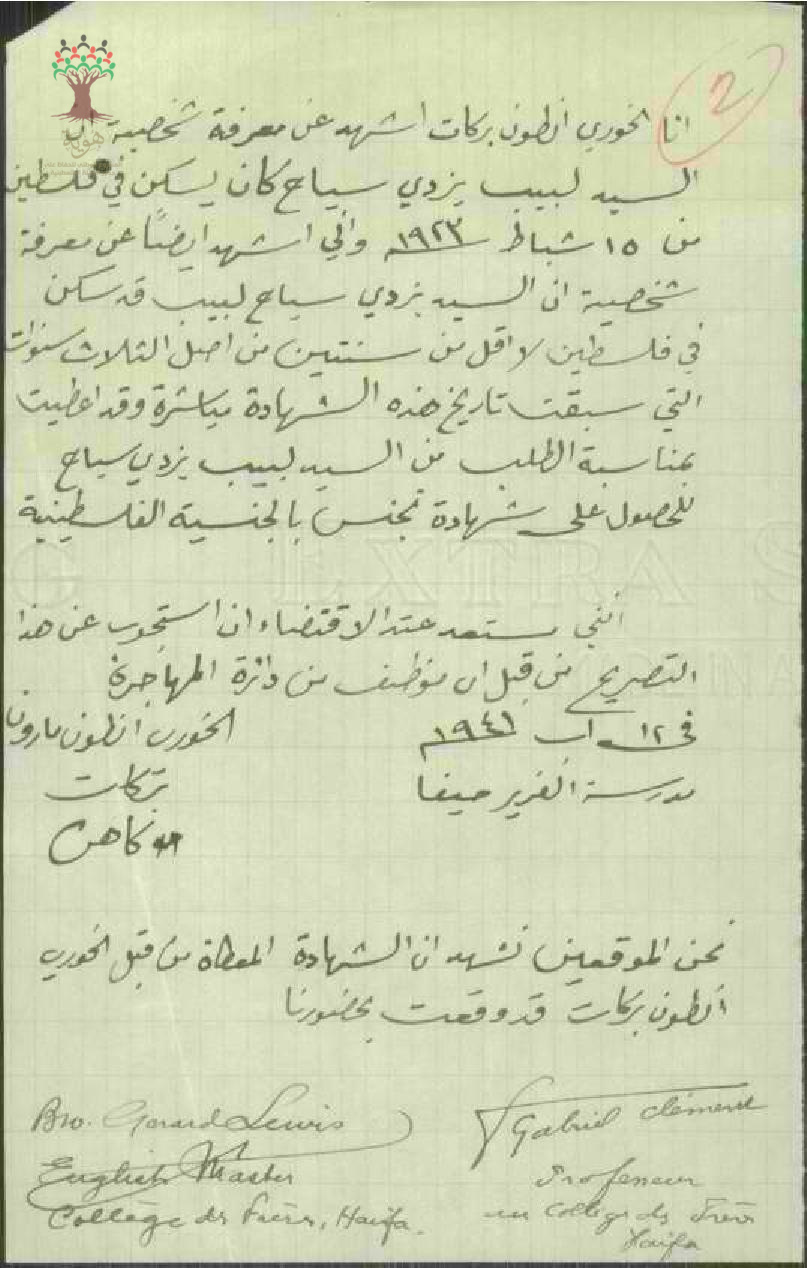 2
هوية
انا الخوري انطون بركات اشهد عن معرفة شخصية ان
السيد لبيب يزدي سياح كان يسكن في فلسطين
من ١٥ شباط سنة ١٩٢٣م واني اشهد ايضاً عن معرفة
شخصية ان السيد يزدي سياح لبيب قد سكن
في فلسطين لا اقل من سنتين من اصل الثلاث سنوات
التي سبقت تاريخ هذه الشهادة مباشرة وقد اعطيت
بمناسبة الطلب من السيد لبيب يزدي سياح
للحصول على شهادة تجنس بالجنسية الفلسطينية
EXTRA S
انني مستعد عند الاقتضاء ان استجوب عن هذا
التصريح من قبل اي موظف من دائرة المهاجرة
في ١٢ آب سنة ١٩٤١م
الخوري انطون مارون
مدرسة الفرير حيفا
بركات
كاهن
نحن الموقعين نشهد ان الشهادة المعطاة من قبل الخوري
انطون بركات قد وقعت بحضورنا
Bro. Gerard Lewis
English Master
Collège des Frères, Haifa.
Gabriel Clément
Professeur
au Collège des Frères
Haifa